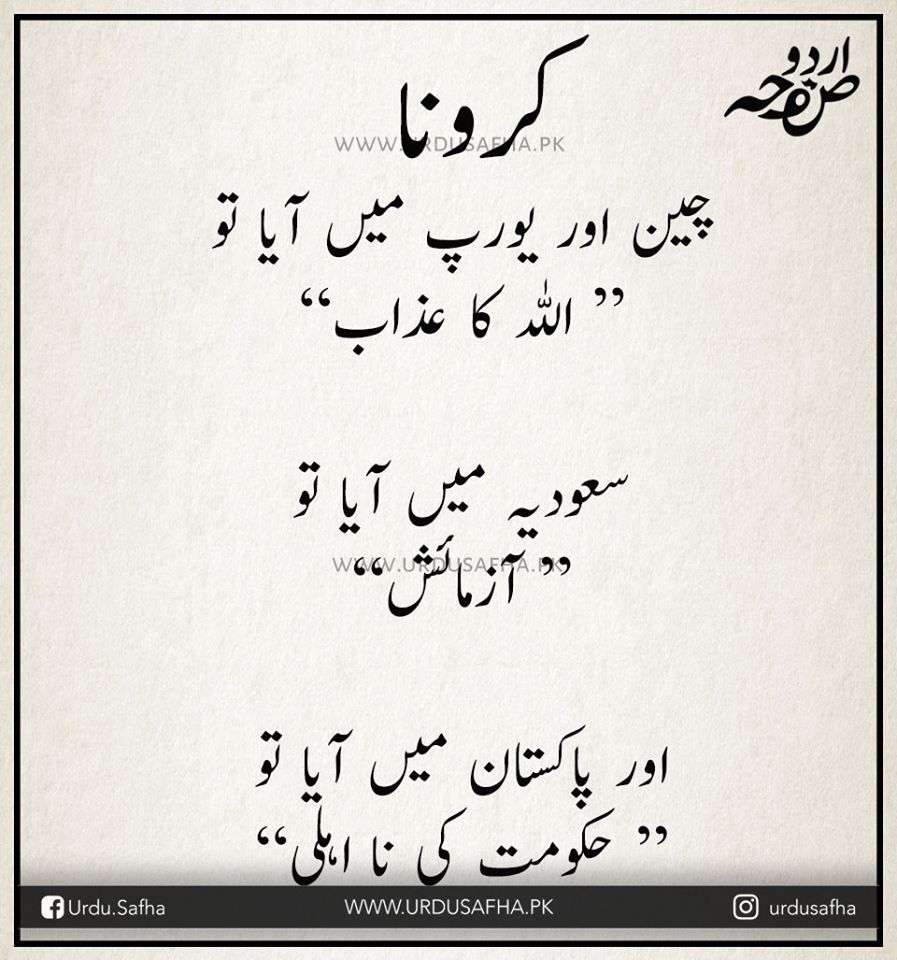 اردو
صفحہ
کرونا
WWW.URDUSAFHA.PK
چین اور یورپ میں آیا تو
” اللہ کا عذاب“
سعودیہ میں آیا تو
WWW.URDUSAFHA.PK
” آزمائش“
اور پاکستان میں آیا تو
” حکومت کی نا اہلی“
Urdu.Safha
WWW.URDUSAFHA.PK
urdusafha